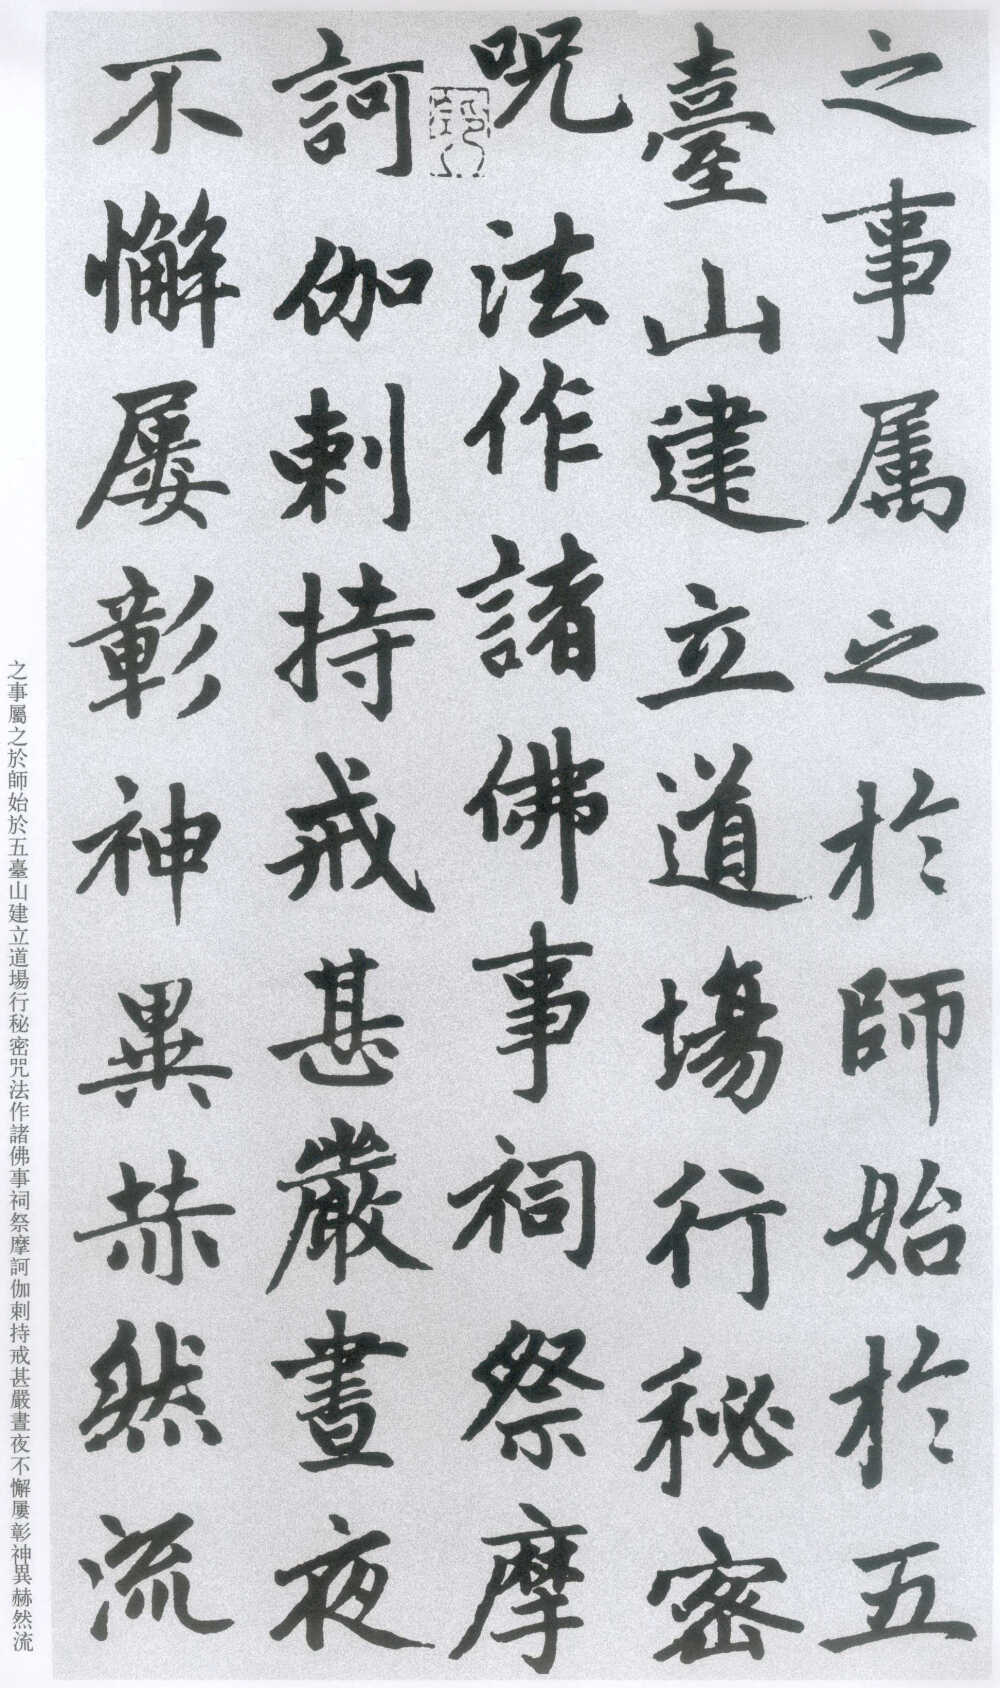 之事属之於師始於五
臺山建立道場行秘密
咒法作諸佛事祠祭摩
訶伽剌持戒甚嚴晝夜
不懈屢彰神異赫然流
之事屬之於師始於五臺山建立道場行秘密咒法作諸佛事祠祭摩訶伽剌持戒甚嚴晝夜不懈屢彰神異赫然流